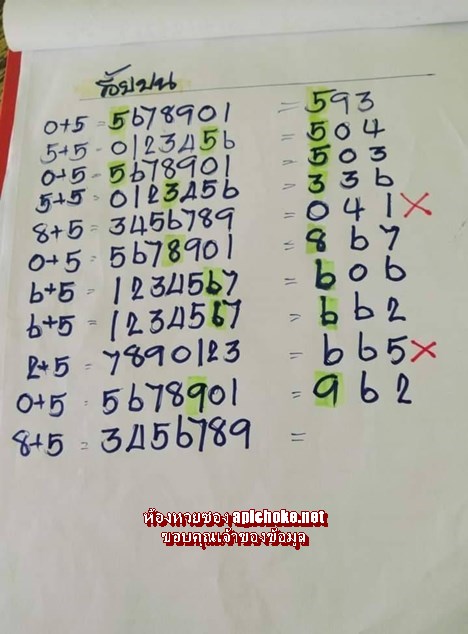 ร้อยบน
0+5 = 5678901 = 593
5+5 = 0123456 = 504
0+5 = 5678901 = 503
5+5 = 0123456 = 336
8+5 = 3456789 = 041 ×
0+5 = 5678901 = 867
6+5 = 1234567 = 606
6+5 = 1234567 = 662
2+5 = 7890123 = 665 ×
0+5 = 5678901 = 962
8+5 = 3456789 =
ห้องหวยซอง apichoke.net
ขอบคุณเจ้าของข้อมูล